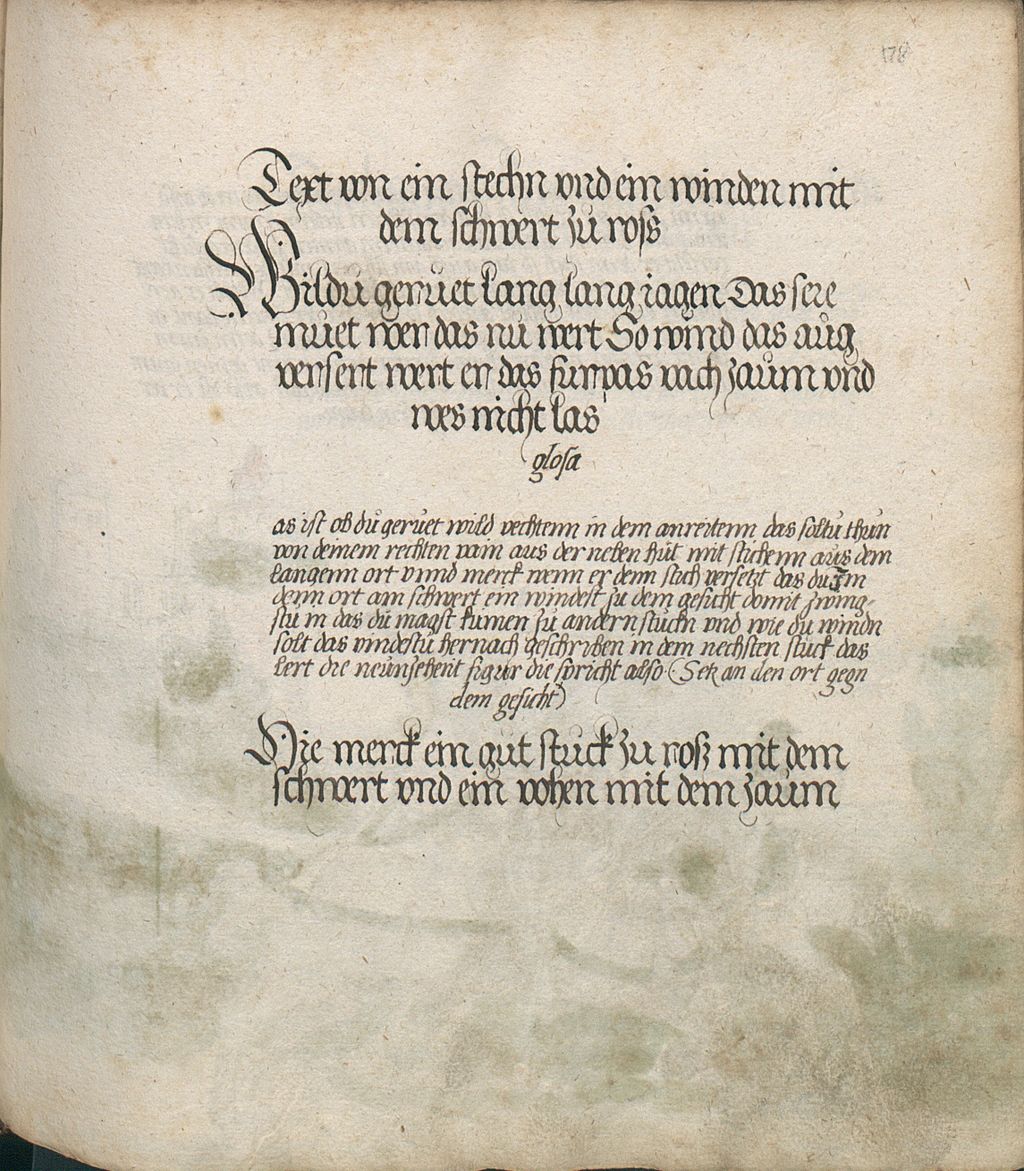 178
Text von ein stechn vnd ein winden mit
dem schwert zu ross
Wildu geruet lang lang jagen Das sere
muet wer das nu wert So wind das aug
versent wert er das furpas vach zaum vnd
wes nicht las
glosa
as ist ob du geruet wild vechtenn in dem anreitenn das soltu thun
von deinem rechten pain aus der neben hut mit stichenn aus dem
langenn ort vnnd merck wenn er denn stich versetzt das du Im
denn ort am schwert ein windest zu dem gesicht domit zwing-
stu in das du magst kumen zu andern stuckn vnd wie du windn
solt das vindestu hernach geschriben in dem nechsten stuck das
lert die neunzehent figur die spricht also (Setz an den ort gegn
dem gesicht)
Hie merck ein gut stuck zu rosz mit dem
schwert vnd ein vohen mit dem zaum